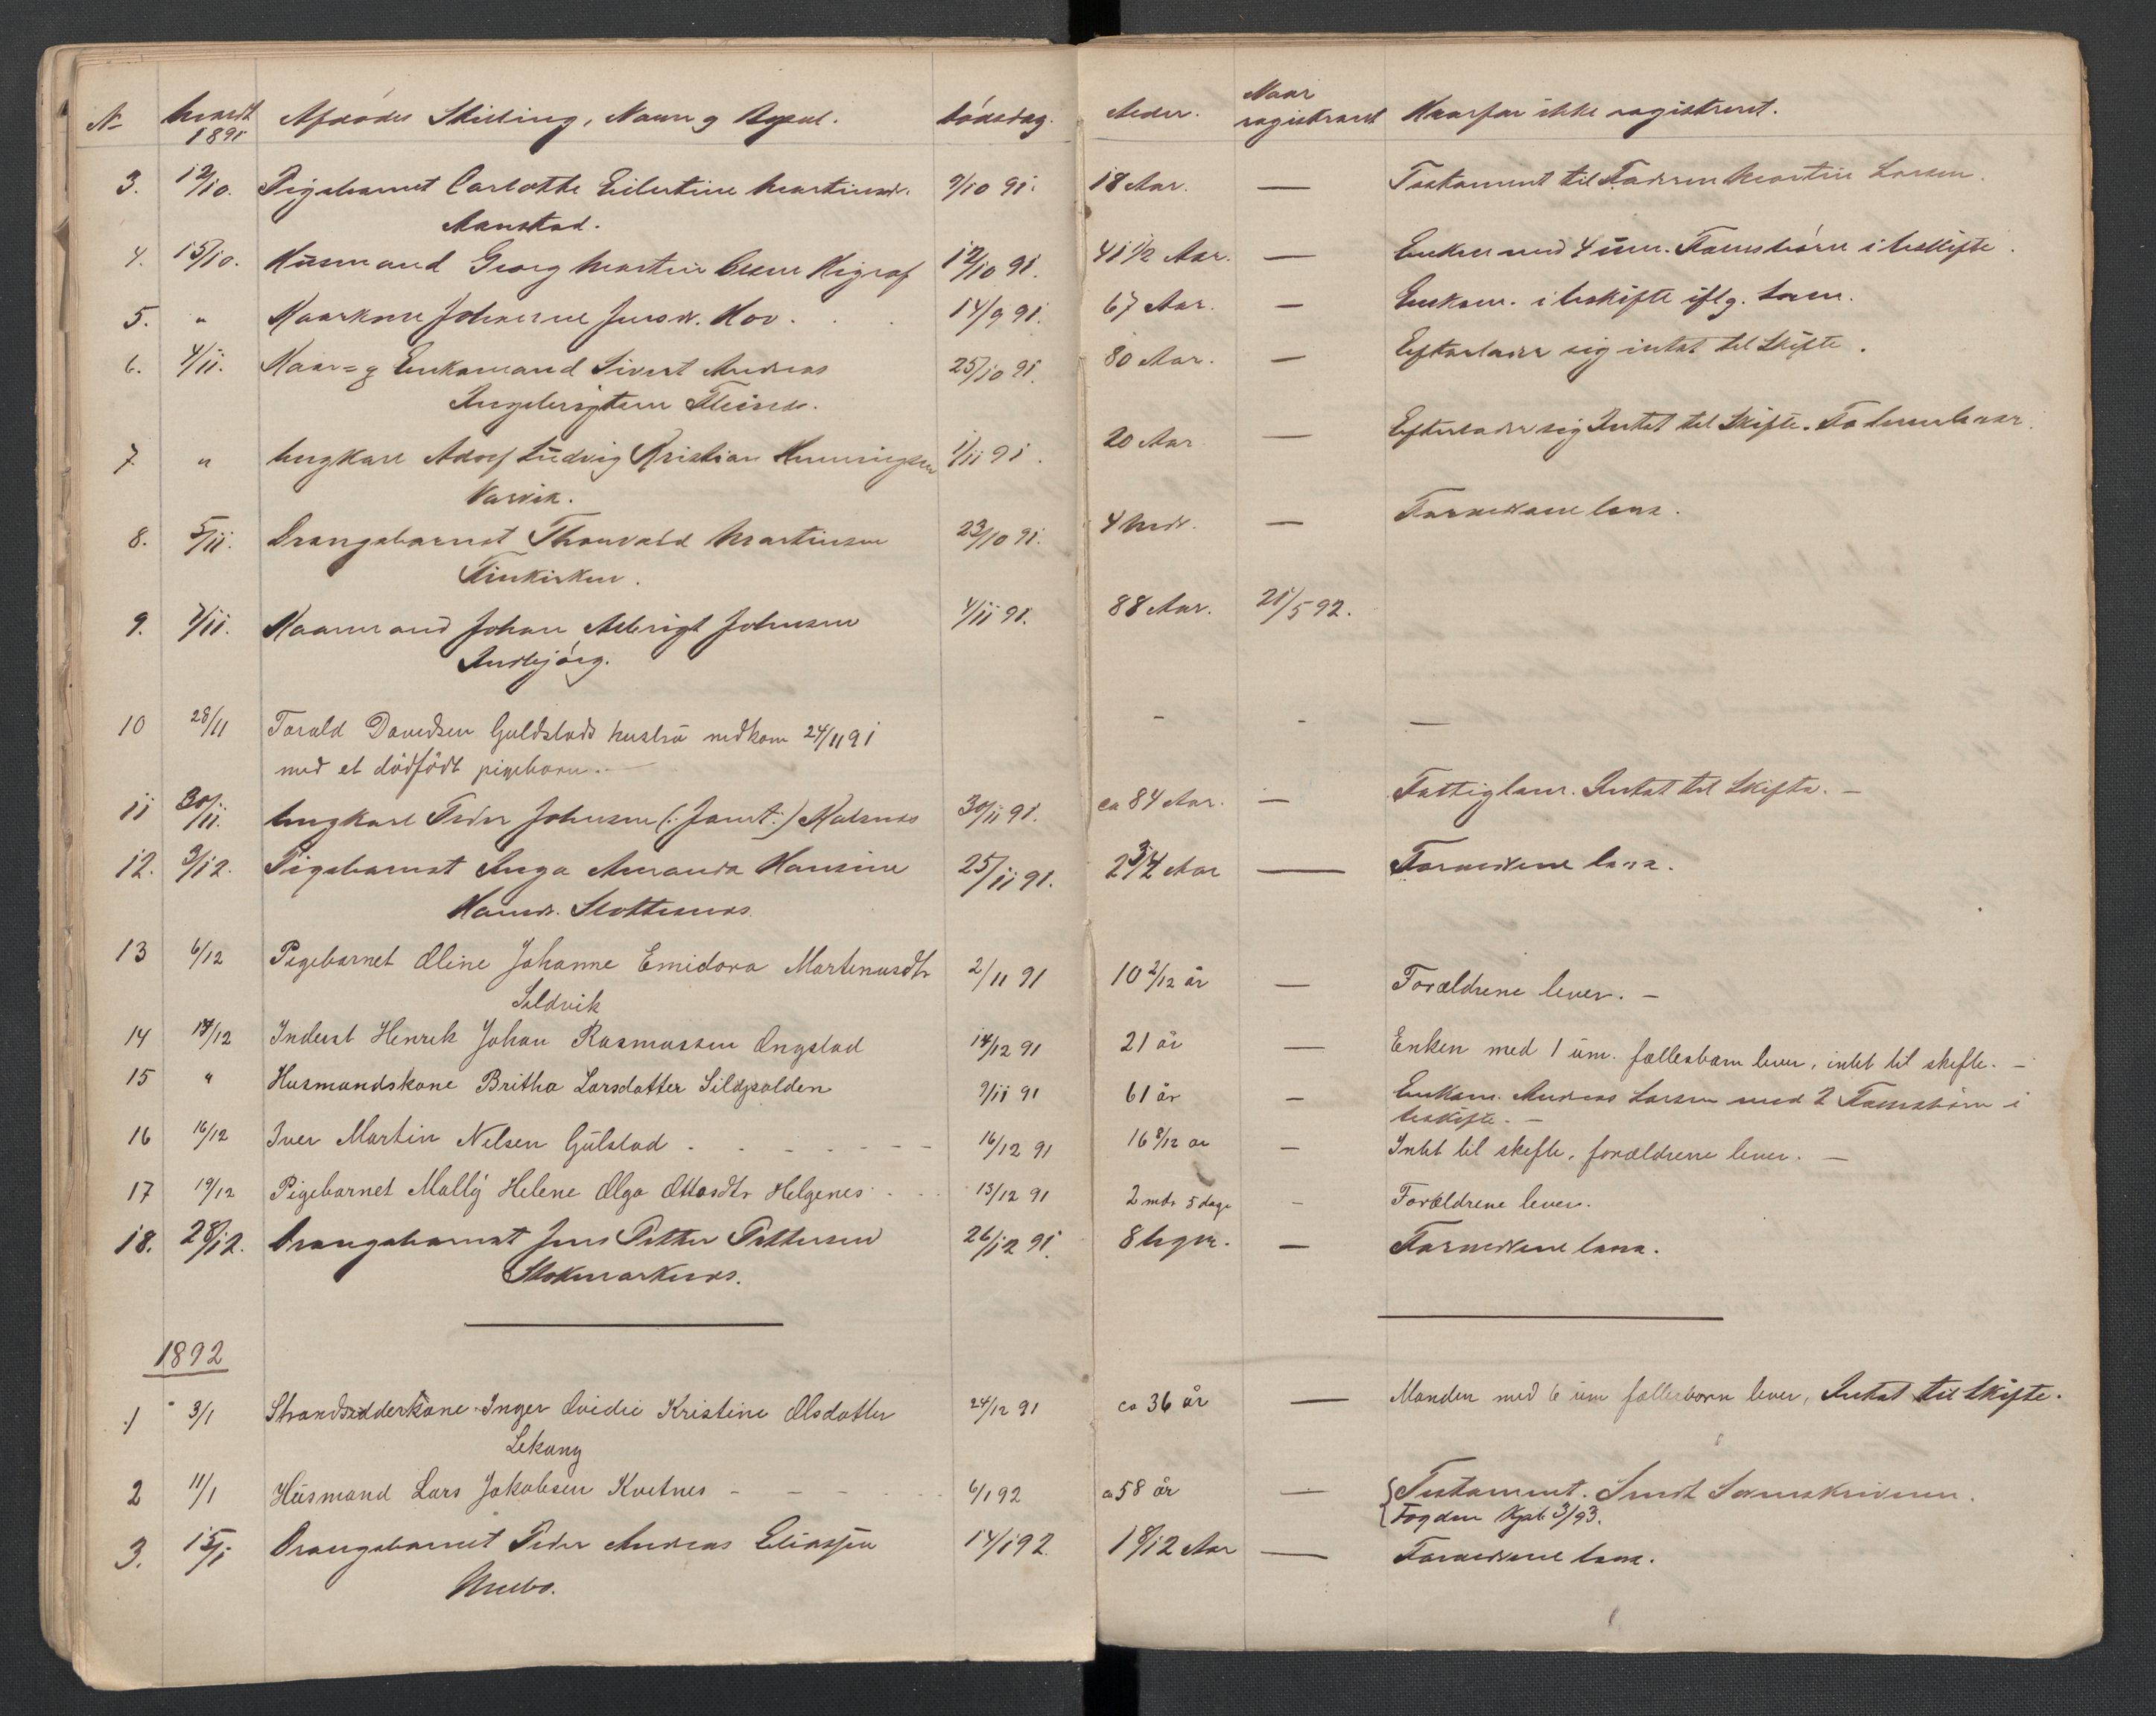 No Meldt 1891 Afdødes Stilling, Navn og Bopæl. Dødsdag. Alder. Naar registreret Hvorfor ikke registreret.
3. 12/10. Pigebarnet Carlotte Eilertine Martinsd. 9/10 91. 18 Aar. — Testament til Faderen Martin Larsen.
Aanstad.
4. 15/10. Husmand Georg Martin Higraf 12/10 91. 41 1/2 Aar. — Enken med 4 um. Fællesbørn i uskifte.
5. " Kaarkone Johanna Jensd. Hov . . . 14/9 91. 67 Aar. — Enkem. i uskifte iflg. Loven.
6. 4/11. Kaar- og Enkemand Sivert Andreas 25/10 91. 80 Aar. — Efterlader sig intet til Skifte.
Ingebrigtsen
7 " Ungkarl Adolf Ludvig Kristian Henningsen 1/11 91. 20 Aar — Efterlader sig Intet til Skifte. Faderen lever.
Varvik.
8. 5/11. Drengebarnet Thorvald Martinsen 23/10 91. 4 Mdr. — Forældrene leve.
Finkirken.
9. 7/11. Kaarmand Johan Albrigt Johnsen 4/11 91. 88 Aar. 21/5 92.
Indbjørg.
10 28/11 Torald Davidsen Guldstads hustru nedkom 24/11 91 - - —
med et dødfødt pigebarn. —
11 30/11. Ungkarl Peder Johnsen (: :) Kalsnes 30/11 91. ca 84 Aar. — Fattiglem. Intet til Skifte. —
12. 3/12. Pigebarnet Inga Amanda Hansine 25/11 91. 2 3/4 Aar — Forældrene leve.
Hansd. Slottenes.
13 6/12 Pigebarnet Oline Johanne Emidora Martinusdtr 2/11 91 10 2/12 år — Forældrene lever. —
Seldvik
14 14/12 Inderst Henrik Johan Rasmussen Ongstad 14/12 91 21 år — Enken med 1 um. fællesbarn lever, intet til skifte. —
15 " Husmandskone Britha Larsdatter Sildpolden 9/11 91 61 år — Enkem. Andreas Larsen med 2 Fællesbørn i
uskifte. —
16 16/12 Iver Martin Nilsen Gulstad . . - . - - 16/12 91 16 8/12 år — Intet til skifte, forældrene lever. —
17 19/12 Pigebarnet Mally Helene Olga Ottosdtr Helgenes . . 13/12 91 2 mdr 5 dage - Forældrene lever.
18. 28/12. Drengebarnet Jens Petter Pettersen 26/12 91. 8 Uger. — Forældrene leve.
Stokmarknes.
1892
1 3/1 Strandsidderkone Inger Ovidie Kristine Olsdatter 24/12 91 ca 36 år — Manden med 6 um fællesbørn lever, Intet til Skifte.
Lekang
2 11/1 Husmand Lars Jakobsen Kvitnes - - - 6/1 92 ca 58 år — Testament. Sendt Sorenskriveren.
Fogden Kjpb 3/93.
3. 15/1 Drengebarnet Peder Andreas Eliassen 14/1 92. 1 8/12 Aar — Forældrene leve.
Melbo.